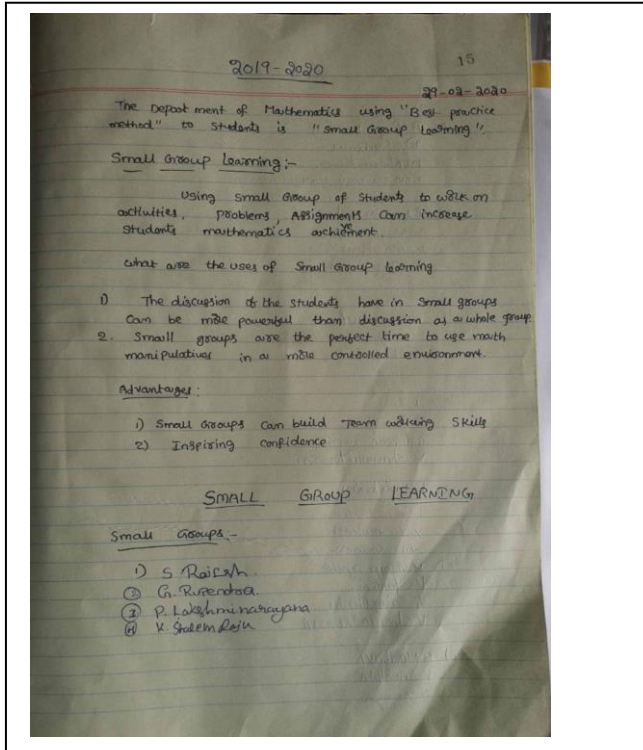 2019-2020
15
29-02-2020
The Depart ment of Mathematics using "Best practice
method" to students is "Small Group Learning".
Small Group Learning:-
Using Small Group of Students to work on
activities, problems, Assignments Can increase
students mathematics achievment.
what are the uses of Small Group learning
1) The discussion of the students have in Small groups
Can be more powerful than discussion as a whole group.
2. Small groups are the perfect time to use math
manipulatives in a more controlled environment.
Advantages:
1) Small Groups Can build Team working Skills
2) Inspiring confidence
SMALL GROUP LEARNING
Small Groups:-
1) S Rajesh.
2) G. Rupendra.
3) P. Lakshminarayana
4) K. Shalem Raju